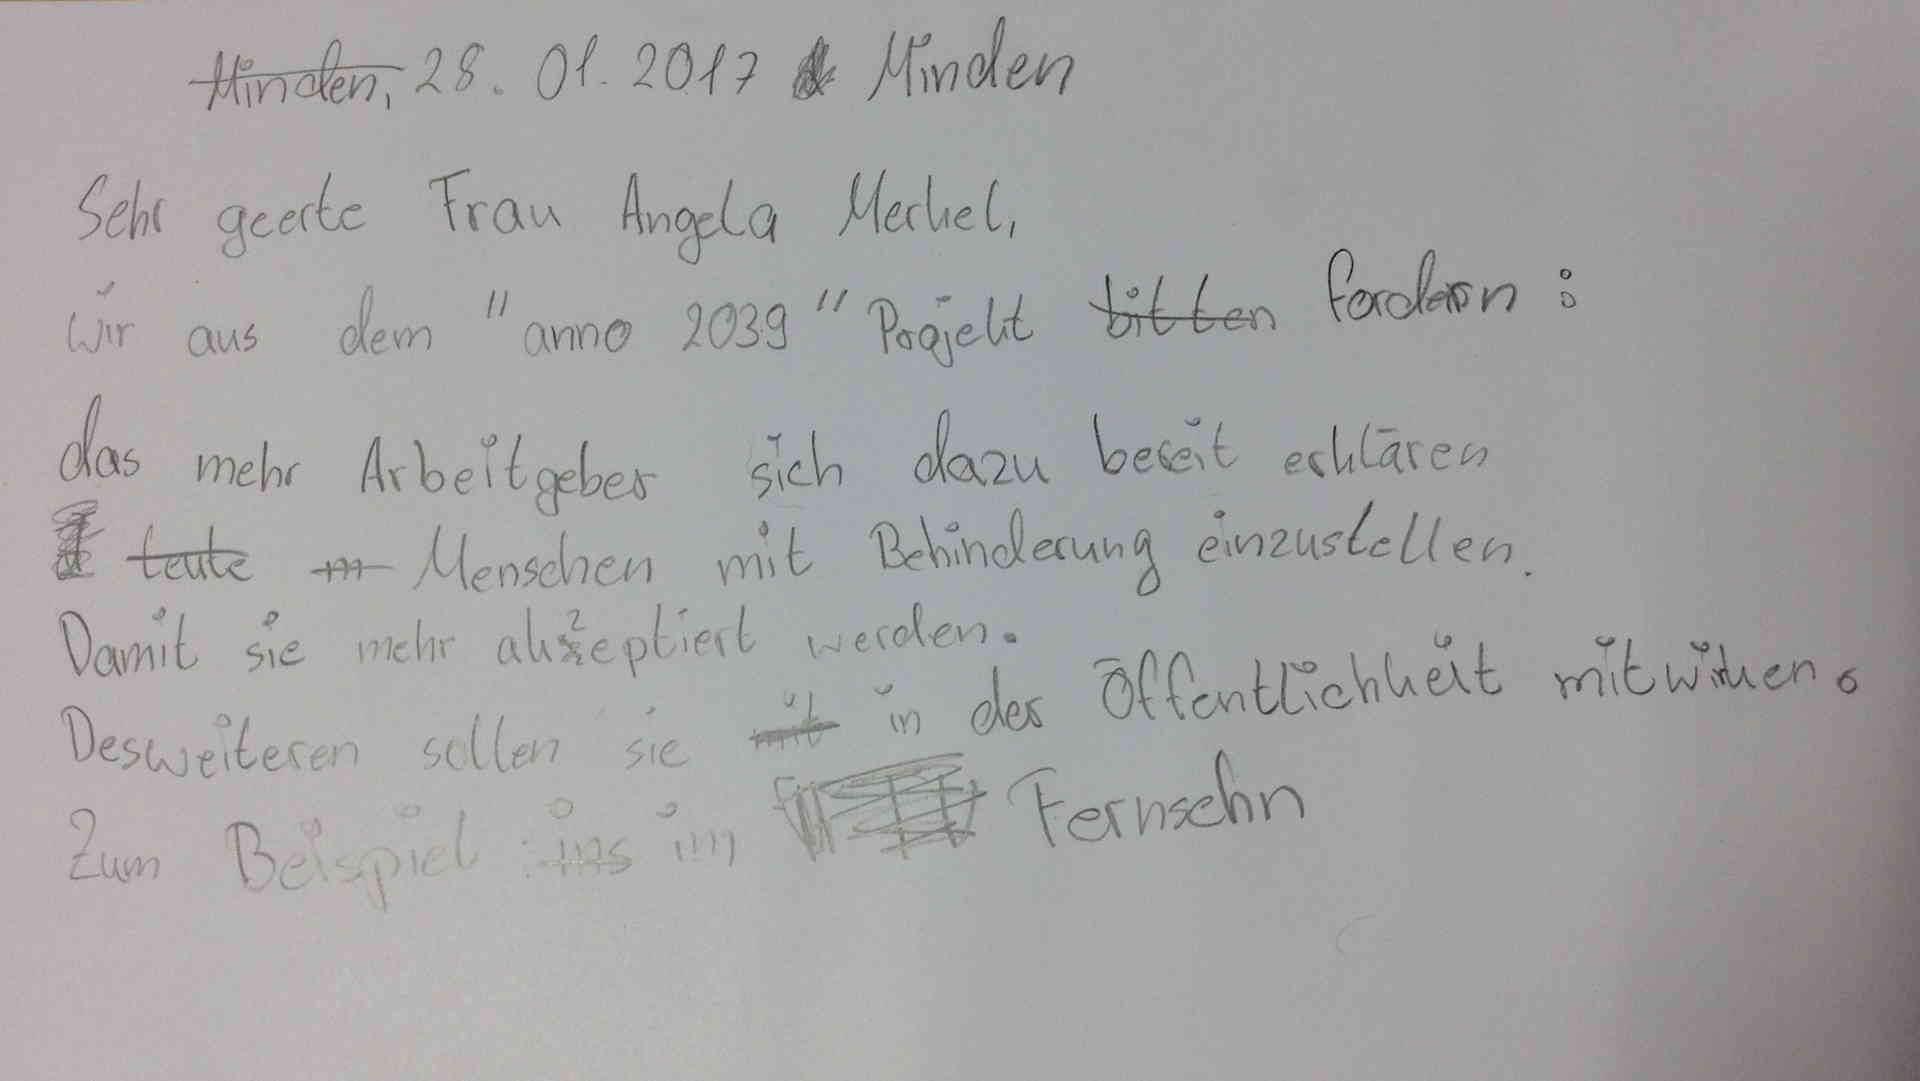 Minden, 28. 01. 2017 Minden
Sehr geerte Frau Angela Merkel,
wir aus dem "anno 2039" Projekt bitten fordern:
das mehr Arbeitgeber sich dazu bereit erklären
leute m Menschen mit Behinderung einzustellen.
Damit sie mehr akzeptiert werden.
Desweiteren sollen sie mit in der Öffentlichkeit mitwirken.
Zum Beispiel: ins im Fernsehn